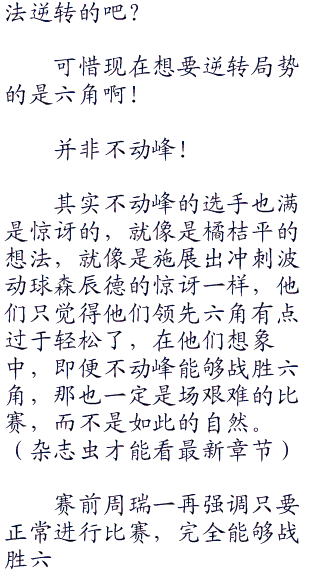 法逆转的吧？
可惜现在想要逆转局势
的是六角啊！
并非不动峰！
其实不动峰的选手也满
是惊讶的，就像是橘桔平的
想法，就像是施展出冲刺波
动球森辰德的惊讶一样，他
们只觉得他们领先六角有点
过于轻松了，在他们想象
中，即便不动峰能够战胜六
角，那也一定是场艰难的比
赛，而不是如此的自然。
（杂志虫才能看最新章节）
赛前周瑞一再强调只要
正常进行比赛，完全能够战
胜六